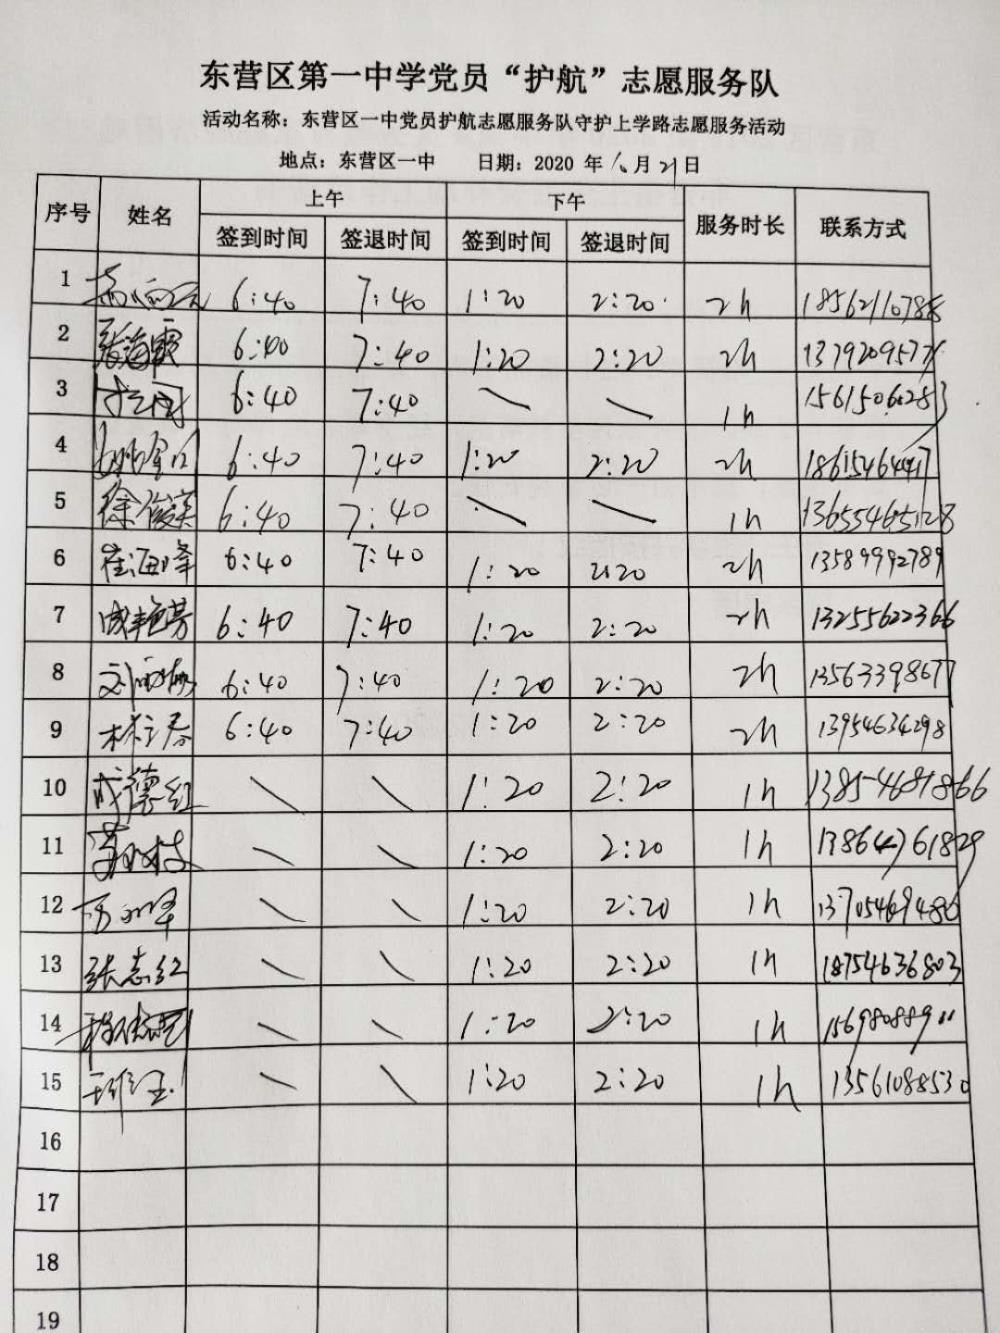 东营区第一中学党员“护航”志愿服务队
活动名称：东营区一中党员护航志愿服务队守护上学路志愿服务活动
地点：东营区一中 日期：2020 年 月 21 日
序号 姓名 上午 下午 服务时长 联系方式
签到时间 签退时间 签到时间 签退时间
1 6:40 7:40 1:20 2:20 2h 18562110788
2 张海霞 6:40 7:40 1:20 2:20 2h
3 6:40 7:40 \ \ 1h 15615060283
4 6:40 7:40 1:20 2:20 2h
5 徐俊英 6:40 7:40 \ \ 1h
6 崔海峰 6:40 7:40 1:20 2:20 2h 13589992789
7 成艳芳 6:40 7:40 1:20 2:20 2h 13255622366
8 6:40 7:40 1:20 2:20 2h 13563398677
9 林立春 6:40 7:40 1:20 2:20 2h 13954634298
10 成德红 \ \ 1:20 2:20 1h 13854681866
11 \ \ 1:20 2:20 1h 13864761829
12 \ \ 1:20 2:20 1h 13705469486
13 张志红 \ \ 1:20 2:20 1h 18754636803
14 \ \ 1:20 2:20 1h
15 \ \ 1:20 2:20 1h 13561088530
16
17
18
19